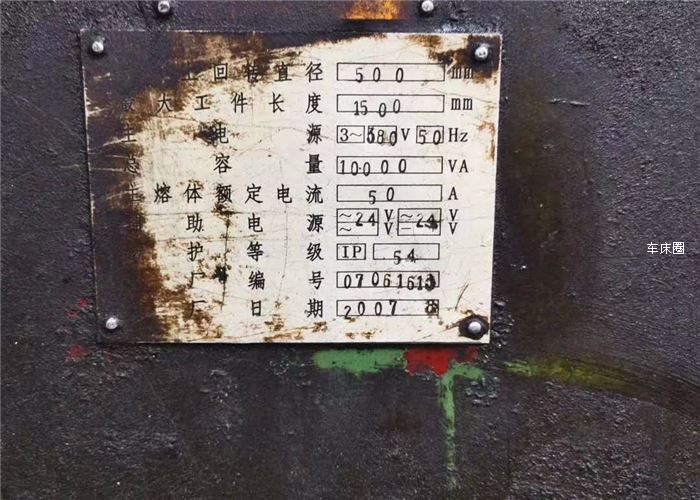 上回转直径 500 mm
最大工件长度 1500 mm
主电源 3~ 380V 50 Hz
总容量 10000 VA
主熔体额定电流 50 A
助电源 ~24 V ~24 V
~ V = V
护等级 IP 54
厂编号 0706161
厂日期 2007 8
车床圈